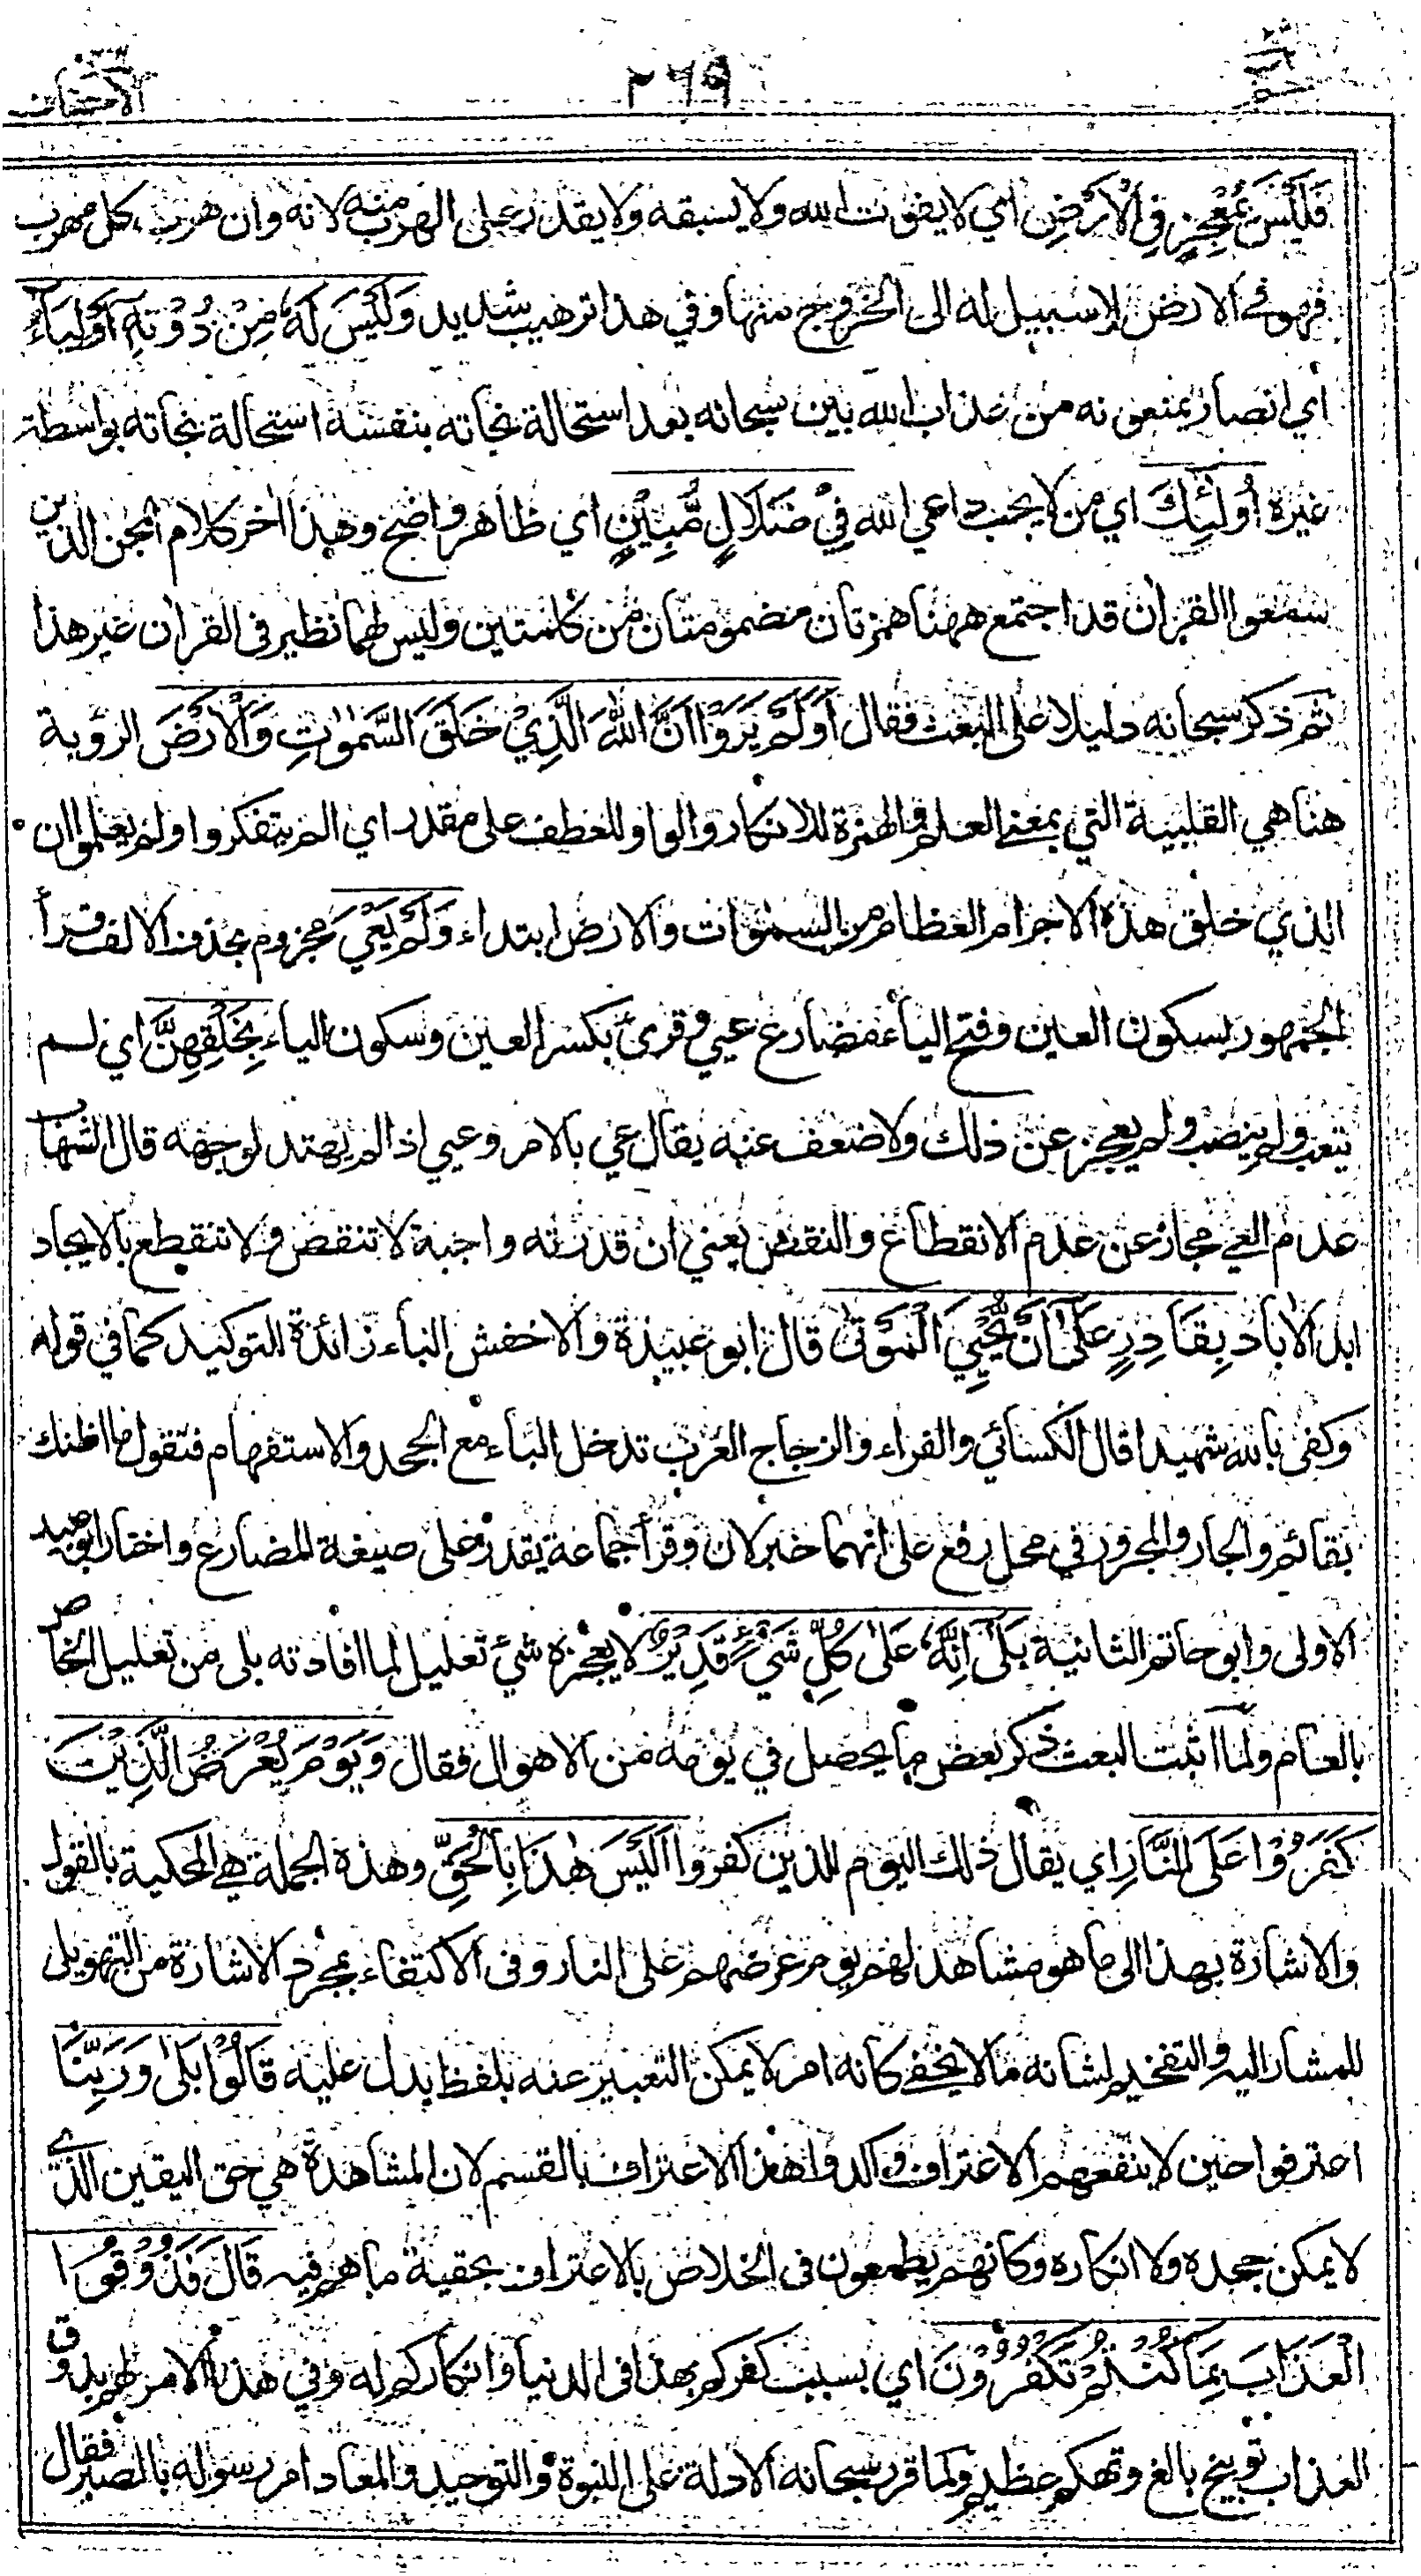 ٢٦٩
الاحقاف
فَلَيْسَ بِمُعْجِزٍ فِي الْأَرْضِ اي لا يفوت الله ولا يسبقه ولا يقدر على الهرب منه لانه وان هرب كل مهرب
فهو في الارض لا سبيل له الى الخروج منها وفي هذا ترهيب شديد وَلَيْسَ لَهُ مِنْ دُوْنِهِ أَوْلِيَاءُ
أي انصار يمنعونه من عذاب الله بين سبحانه بعد استحالة نجاته بنفسه استحالة نجاته بواسطة
غيره أُولٰئِكَ اي من لا يجب داعي الله فِيْ ضَلَالٍ مُّبِيْنٍ اي ظاهر واضح وهذا اخر كلام الجن الذين
سمعوا القران قد اجتمع ههنا همزتان مضمومتان من كلمتين وليس لهما نظير في القران غير هذا
ثم ذكر سبحانه دليلا على البعث فقال أَوَلَمْ يَرَوْا أَنَّ اللهَ الَّذِيْ خَلَقَ السَّمٰوٰتِ وَالْأَرْضَ الرؤية
هنا هي القلبية التي بمعنى العلم والهمزة للانكار والواو للعطف على مقدر اي الم يتفكروا ولم يعلموا ان
الذي خلق هذه الاجرام العظام من السموات والارض ابتداء وَلَمْ يَعْيَ مجزوم بحذف الالف قرأ
الجمهور بسكون العين وفتح الياء مضارع عيي وقرئ بكسر العين وسكون الياء بِخَلْقِهِنَّ اي لم
يتعب ولم ينصب ولم يعجز عن ذلك ولا ضعف عنه يقال عي بالامر وعيي اذا لم يهتد لوجهه قال الشهاب
عدم العي مجاز عن عدم الانقطاع والنقض يعني ان قدرته واجبة لا تنقض ولا تنقطع بالايجاد
ابد الاباد بِقَادِرٍ عَلَىٰ أَنْ يُّحْيِيَ الْمَوْتَىٰ قال ابو عبيدة والاخفش الباء زائدة للتوكيد كما في قوله
وكفى بالله شهيدا قال الكسائي والفراء والزجاج العرب تدخل الباء مع الجحد والاستفهام فتقول ما اظنك
بقائم والجار والمجرور في محل رفع على انهما خبر لان وقرأ جماعة يقدر على صيغة المضارع واختار ابو عبيد
الاولى وابو حاتم الثانية بَلَىٰ إِنَّهُ عَلَىٰ كُلِّ شَيْءٍ قَدِيْرٌ لا يعجزه شيء تعليل لما افادته بلى من تعليل الخاص
بالعام ولما اثبت البعث ذكر بعض ما يحصل في يومه من الاهوال فقال وَيَوْمَ يُعْرَضُ الَّذِيْنَ
كَفَرُوْا عَلَى النَّارِ اي يقال ذلك اليوم للذين كفروا أَلَيْسَ هٰذَا بِالْحَقِّ وهذه الجملة هي المحكية بالقول
والاشارة بهذا الى ما هو مشاهد لهم يوم عرضهم على النار وفي الاكتفاء بمجرد الاشارة من التهويل
للمشار اليه والتفخيم لشانه ما لا يخفى كانه امر لا يمكن التعبير عنه بلفظ يدل عليه قَالُوْا بَلَىٰ وَرَبِّنَا
اعترفوا حين لا ينفعهم الاعتراف واكدوا هذا الاعتراف بالقسم لان المشاهدة هي حق اليقين الذي
لا يمكن جحده ولا انكاره وكانهم يطمعون في الخلاص بالاعتراف بحقية ما هم فيه قَالَ فَذُوْقُوا
الْعَذَابَ بِمَا كُنْتُمْ تَكْفُرُوْنَ اي بسبب كفركم بهذا في الدنيا وانكاركم له وفي هذا الامر لهم بذوق
العذاب توبيخ بالغ وتهكم عظيم ولما قرر سبحانه الادلة على النبوة والتوحيد والمعاد امر رسوله بالصبر فقال